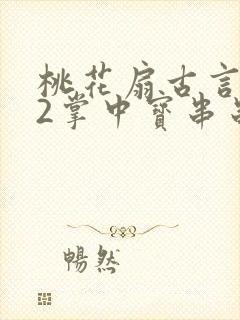 桃花扇古言
2掌中寶串
暢然